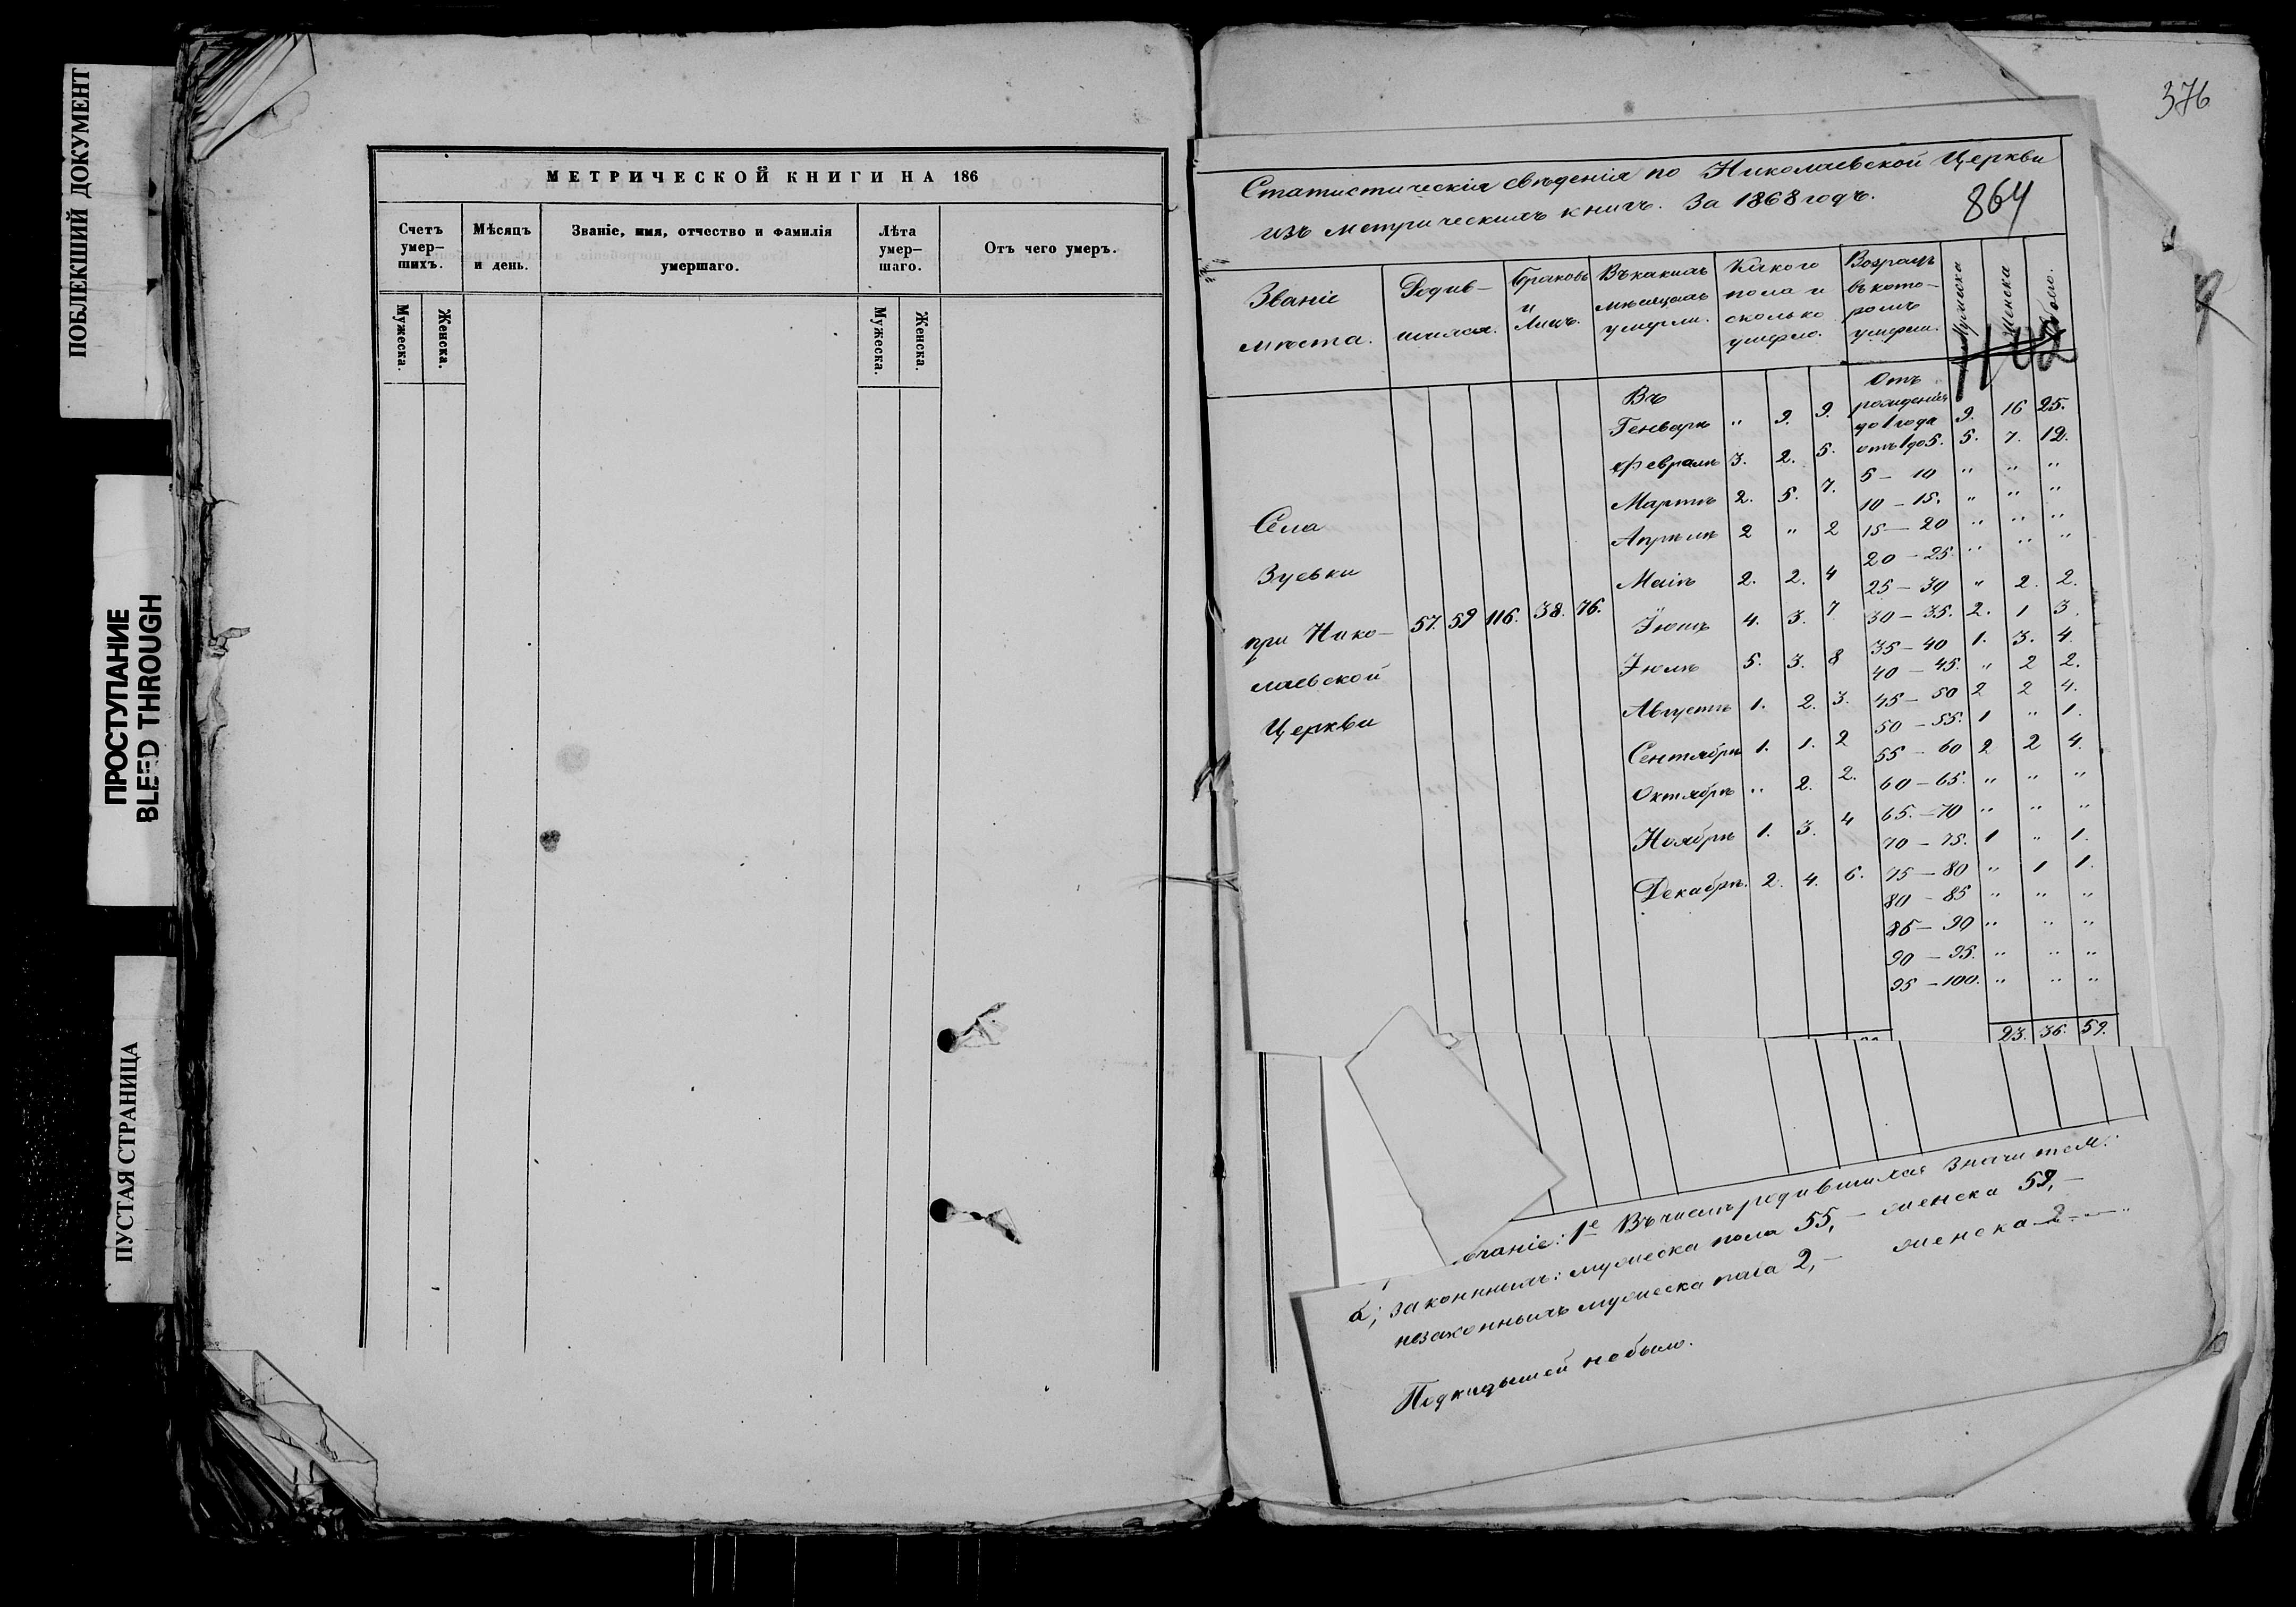 ПОБЛЕКШИЙ ДОКУМЕНТ
ПРОСТУПАНИЕ
BLEED THROUGH
ПУСТАЯ СТРАНИЦА
МЕТРИЧЕСКОЙ КНИГИ НА 186
Счетъ умер—шихъ.
Мѣсяцъ и день.
Званіе, имя, отчество и фамилія умершаго.
Лѣта умер—шаго.
Отъ чего умеръ.
Мужеска.
Женска.
Мужеска.
Женска.
376
Статистическія свѣденія по Николаевской Церкви
изъ метрическихъ книгъ. За 1868 годъ.
864
Званіе мѣста.
Родив—шихся.
Браковъ и Лицъ.
Въ какихъ мѣсяцахъ умерли.
Какого пола и сколько умерло.
Возрастъ въ кото—ромъ умерли.
Мужеска
Женска
Обоего.
142
Села
Зуевки
при Нико—
лаевской
Церкви
57. 59 116. 38. 76.
Въ
Генварѣ " 9. 9.
Февралѣ 3. 2. 5.
Мартѣ 2. 5. 7.
Апрѣлѣ 2 " 2
Маіѣ 2. 2. 4
Іюнѣ 4. 3. 7
Іюлѣ 5. 3. 8
Августѣ 1. 2. 3.
Сентябрѣ 1. 1. 2
Октябрѣ " 2. 2.
Ноябрѣ 1. 3. 4
Декабрѣ. 2. 4. 6.
Отъ
рожденія
до 1 года 9. 16 25.
отъ 1 до 5. 5. 7. 12.
5 — 10 " " "
10 — 15. " " "
15 — 20 " " "
20 — 25. " " "
25 — 30 " 2. 2.
30 — 35. 2. 1 3.
35 — 40 1. 3. 4.
40 — 45. " 2 2.
45 — 50 2 2 4.
50 — 55. 1 " 1.
55 — 60 2 2 4.
60 — 65. " " "
65. — 70 " " "
70 — 75. 1 " 1.
75 — 80 " 1 1.
80 — 85 " " "
85 — 90 " " "
90 — 95. " " "
95 — 100. " " "
23. 36. 59.
чаніе: 1е Въ числѣ родившихся значител:
а; законныхъ: мужеска пола 55, — женска 59, —
незаконныхъ мужеска пола 2, — женска
Подкидышей небыло.